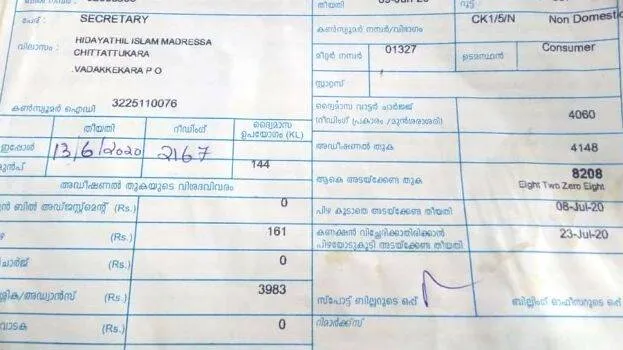 തീയതി
റൂട്ട്
പേര് : SECRETARY
CK1/5/N Non Domestic
കൺസ്യൂമർ നമ്പർ/വിഭാഗം
വിലാസം : HIDAYATHIL ISLAM MADRESSA
CHITTATTUKARA
.VADAKKEKARA P O
മീറ്റർ നമ്പർ 01327 ഉടമസ്ഥൻ Consumer
സ്റ്റാറ്റസ്
കൺസ്യൂമർ ഐഡി : 3225110076
ദ്വൈമാസ വാട്ടർ ചാർജ്ജ്
(റീഡിംഗ് പ്രകാരം /മുൻശരാശരി) 4060
തീയതി റീഡിംഗ് ദ്വൈമാസ ഉപയോഗം (KL)
ഇപ്പോൾ 13/6/2020 2167
അഡീഷണൽ തുക 4148
മുൻപ് 144
ആകെ അടയ്ക്കേണ്ട തുക 8208
Eight Two Zero Eight
അഡീഷണൽ തുകയുടെ വിശദവിവരം
ബിൽ അഡ്ജസ്റ്റ്മെന്റ് (Rs.) 0
പിഴ കൂടാതെ അടയ്ക്കേണ്ട തീയതി 08-Jul-20
(Rs.) 161
കണക്ഷൻ വിച്ഛേദിക്കാതിരിക്കാൻ
പിഴയോടുകൂടി അടയ്ക്കേണ്ട തീയതി 23-Jul-20
(Rs.) 0
/അഡ്വാൻസ് (Rs.) 3983
സ്പോട്ട് ബില്ലറുടെ ഒപ്പ് ബില്ലിംഗ് ഓഫീസറുടെ ഒപ്പ്
വാടക (Rs.) 0
റിമാർക്ക്സ്